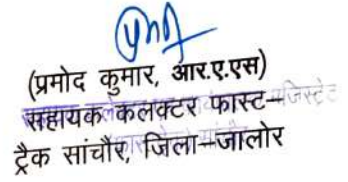 (प्रमोद कुमार, आर.ए.एस)
सहायक कलक्टर फास्ट–
ट्रैक सांचौर, जिला–जालोर